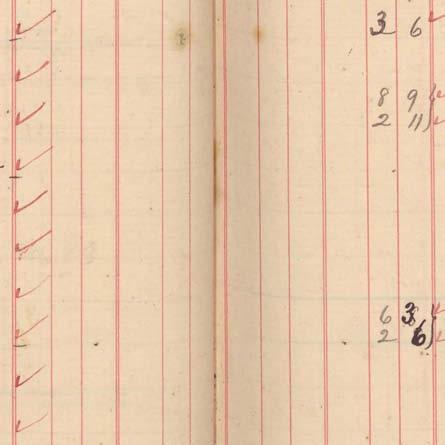 3 6
8 9
2 11
6 3
2 6